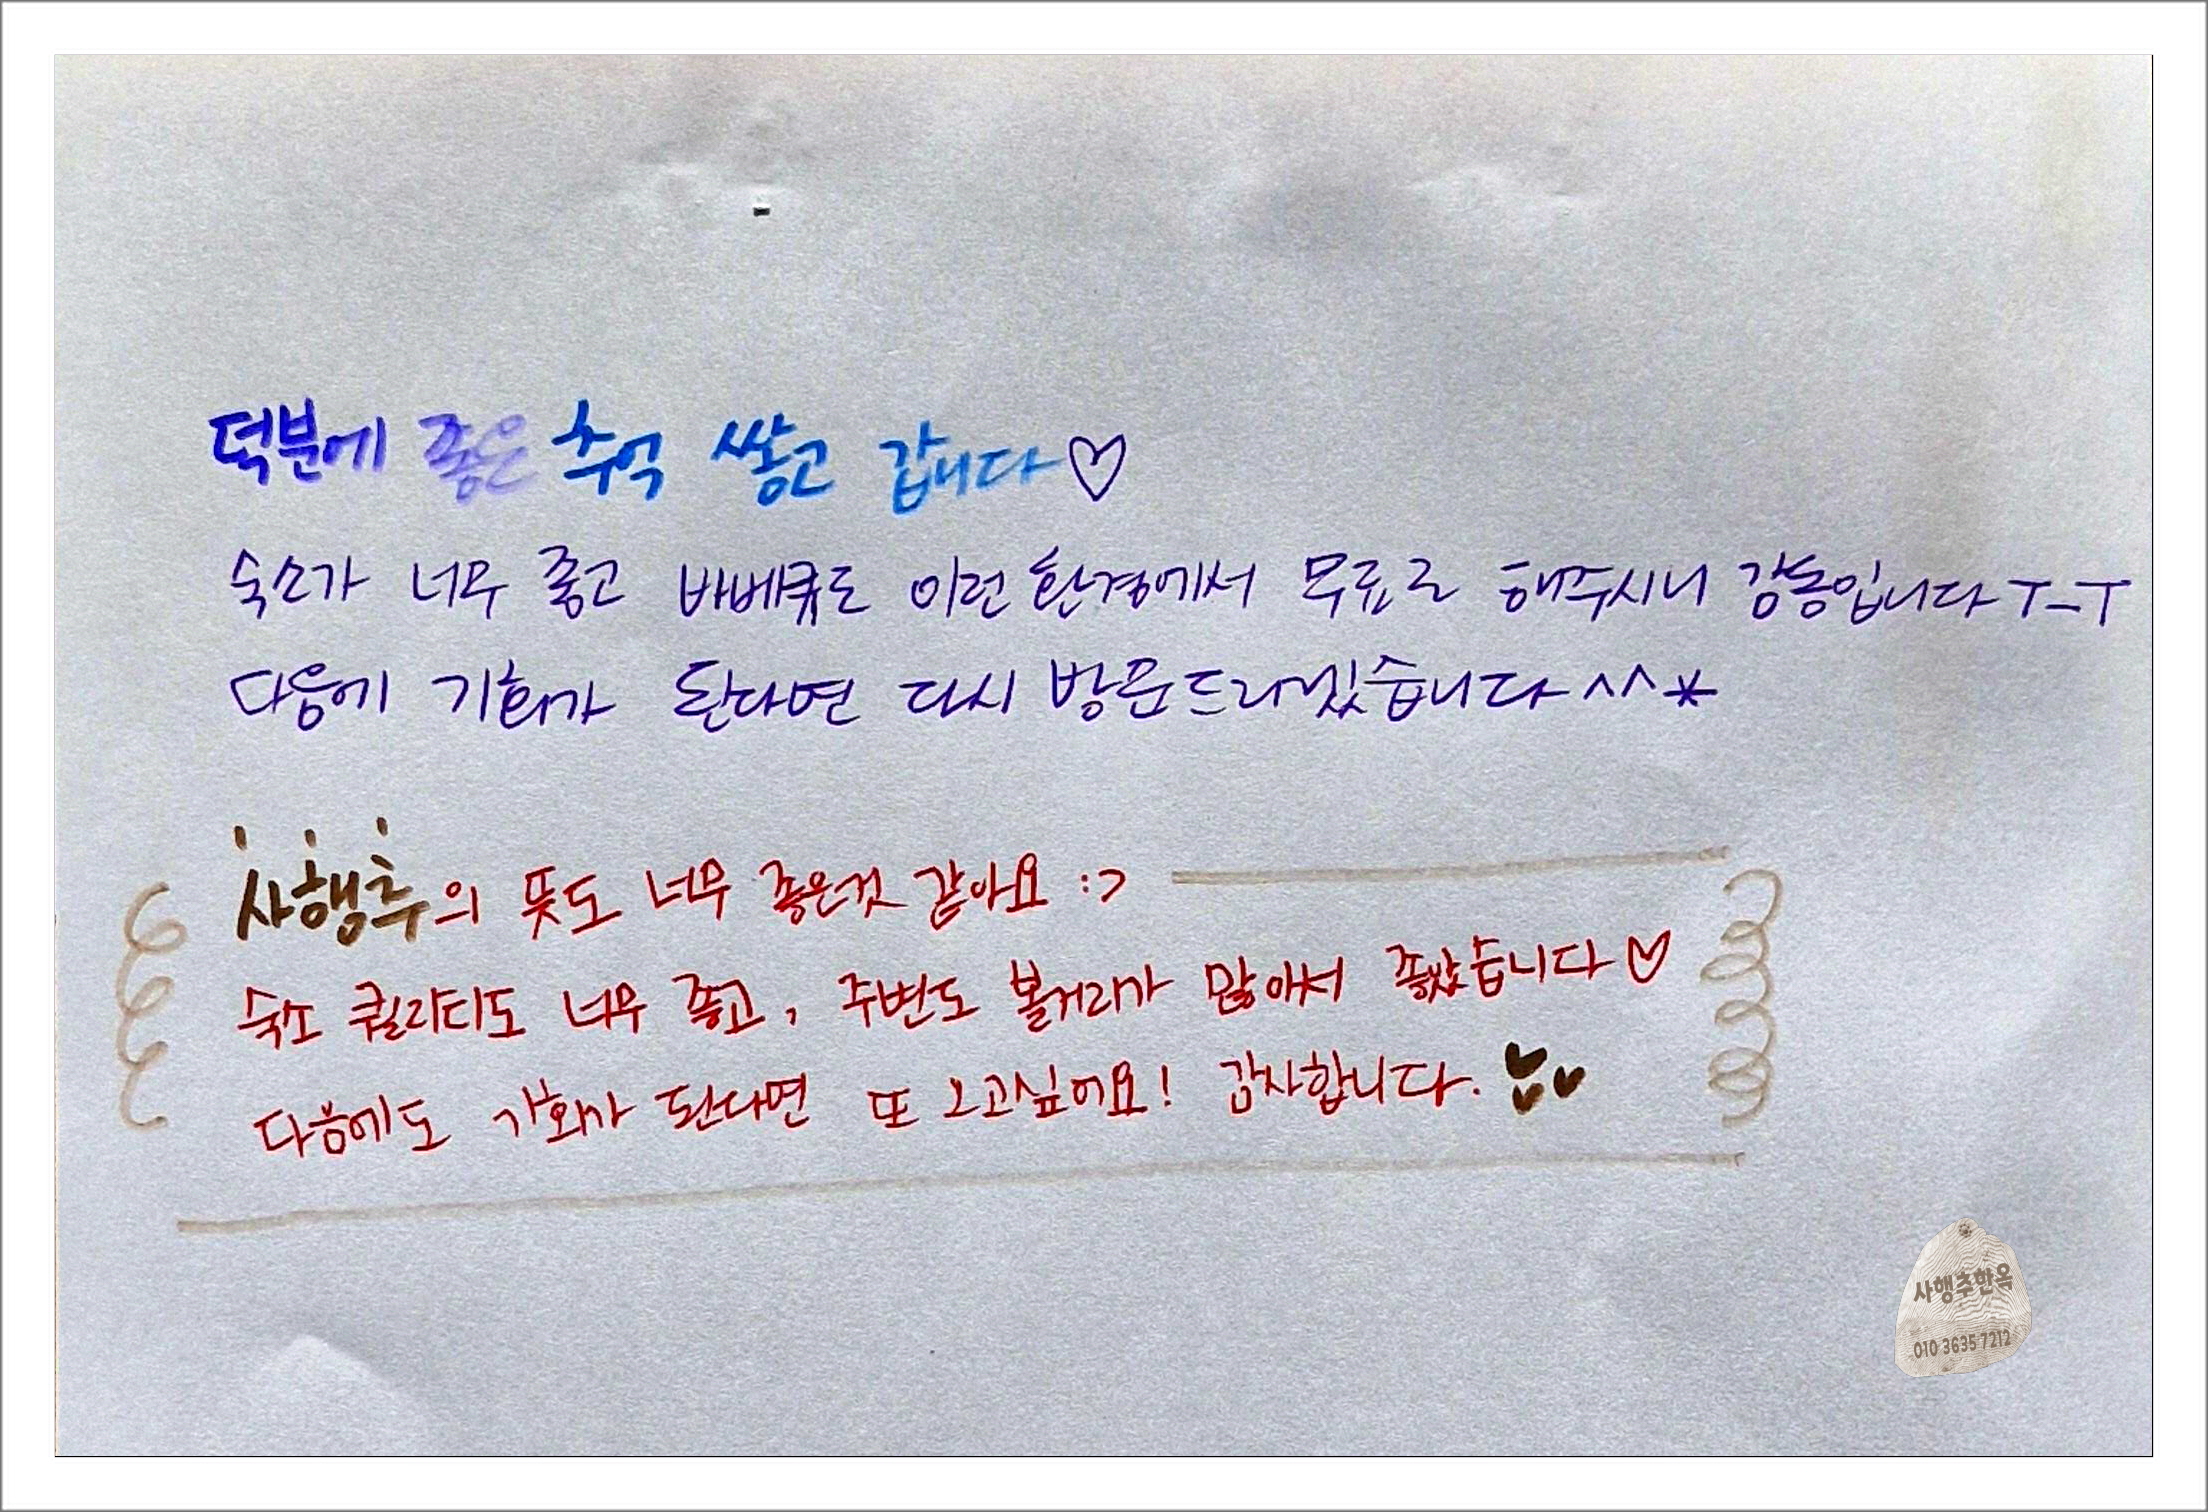 덕분에 좋은 추억 쌓고 갑니다♡
숙소가 너무 좋고 바베큐도 이런 환경에서 무료로 해주시니 감동입니다 ㅜ_ㅜ
다음에 기회가 된다면 다시 방문드리겠습니다 ^^*
사행추의 뜻도 너무 좋은것 같아요 :>
숙소 퀄리티도 너무 좋고, 주변도 볼거리가 많아서 좋았습니다♡
다음에도 기회가 된다면 또 오고싶어요! 감사합니다.
사행추한옥
010 3635 7212